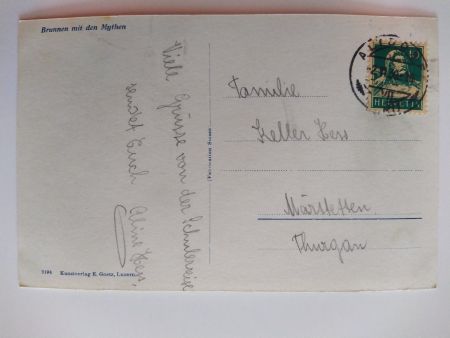 Brunnen mit den Mythen
Viele Grüsse von der Schulreise
sendet Euch Aline Hess.
Familie
Keller Hess
Märstetten
Thurgau
10
HELVETIA
3194 Kunstverlag E. Goetz, Luzern